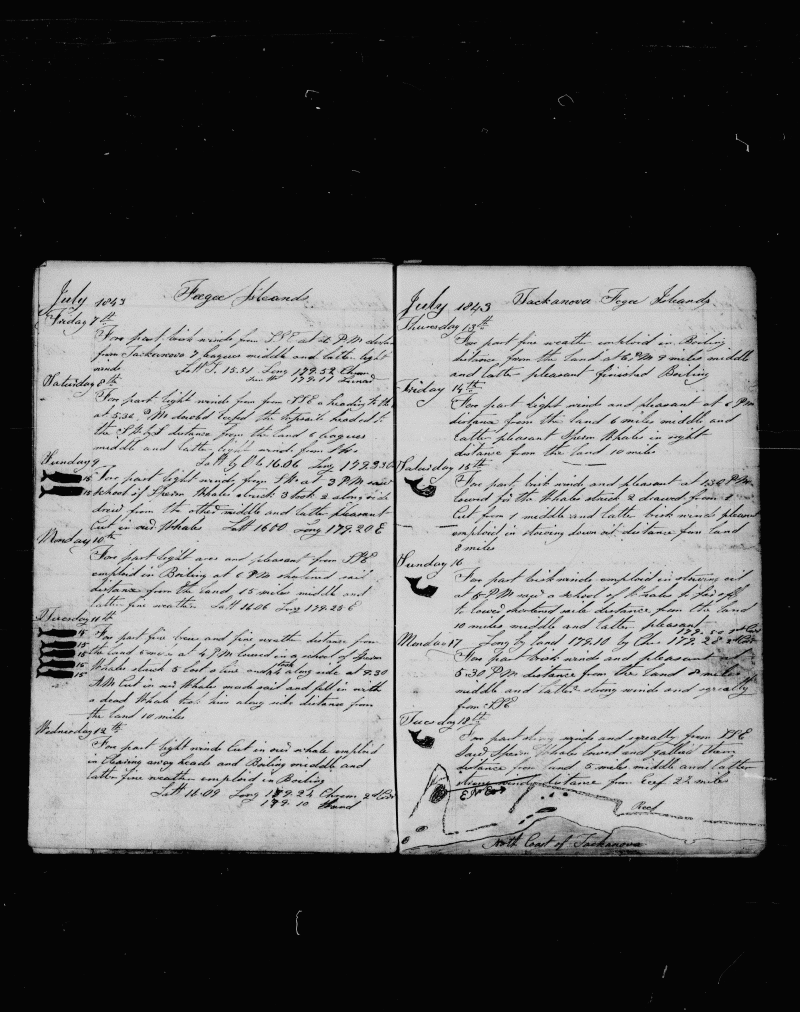 July 1843 Fegee Islands
Friday 7th
Fore part brisk winds from SSE at 12 PM
from Tackanova 7 leagues middle and latter light
winds Latt S. 15.51 Long 179.52 Chron
179.11 Lunar
Saturday 8th
Fore part light winds from from SSE heading to the
at 5.30 PM
the distance from the land 6 leagues
middle and latter light winds from the
Sunday 9 Latt by Ob 16.06 Long 179.23
15 Fore part light winds from at 3 PM saw
15 School of Sperm Whales struck 3 took 2 along side
drew from the other middle and latter pleasant
Cut in our Whales Latt 16.00 Long 179.20 E
Monday 10th
Fore part light aires and pleasant from SSE
employd in Boiling at 6 PM shortened sail
distance from the land 15 miles middle and
latter fine weather Latt 16.06 Long 179.25 E
Tuesday 11th
15 Fore part fine breeze and fine weather distance from
15 the land 6 miles at 4 PM lowered in a school of Sperm
15 Whales struck 5 lost a line and took 4 along side at 9.30
15 AM Cut in our Whales made sail and fell in with
a dead Whale took him along side distance from
the land 10 miles
Wednesday 12th
Fore part light winds Cut in our whale employd
in Clearing away heads and Boiling middle and
latter fine weather employd in Boiling
Latt 16.09 Long 179.24 Chron
179.10
July 1843 Tackanova Fegee Islands
Thursday 13th
Fore part fine weather employd in Boiling
distance from the land at 6 PM 9 miles middle
and latter pleasant finished Boiling
Friday 14th
Fore part light winds and pleasant at 6 PM
distance from the land 6 miles middle and
latter pleasant Sperm Whales in sight
distance from the land 10 miles
Saturday 15th
Fore part brisk winds and pleasant at 1.30 PM
lowered for the Whales struck 2 drawed from 1
Cut from 1 middle and latter brisk winds pleasant
employd in stowing down oil distance from land
8 miles
Sunday 16
Fore part brisk winds employd in stowing oil
at 5 PM a school of Whales to far off
to lower shortened sail distance from the land
10 miles middle and latter pleasant
179.50
Monday 17 Long by land 179.10 by Ch.
Fore part brisk winds and pleasant at
5.30 PM distance from the land 8 miles
middle and latter strong winds and squally
from SSE
Tuesday 18th
Fore part strong winds and squally from SSE
Saw Sperm Whales lowed and gallied them
distance from land 5 miles middle and latter
strong winds distance from Reef 22 miles
Reef
North Coast of Tackanova